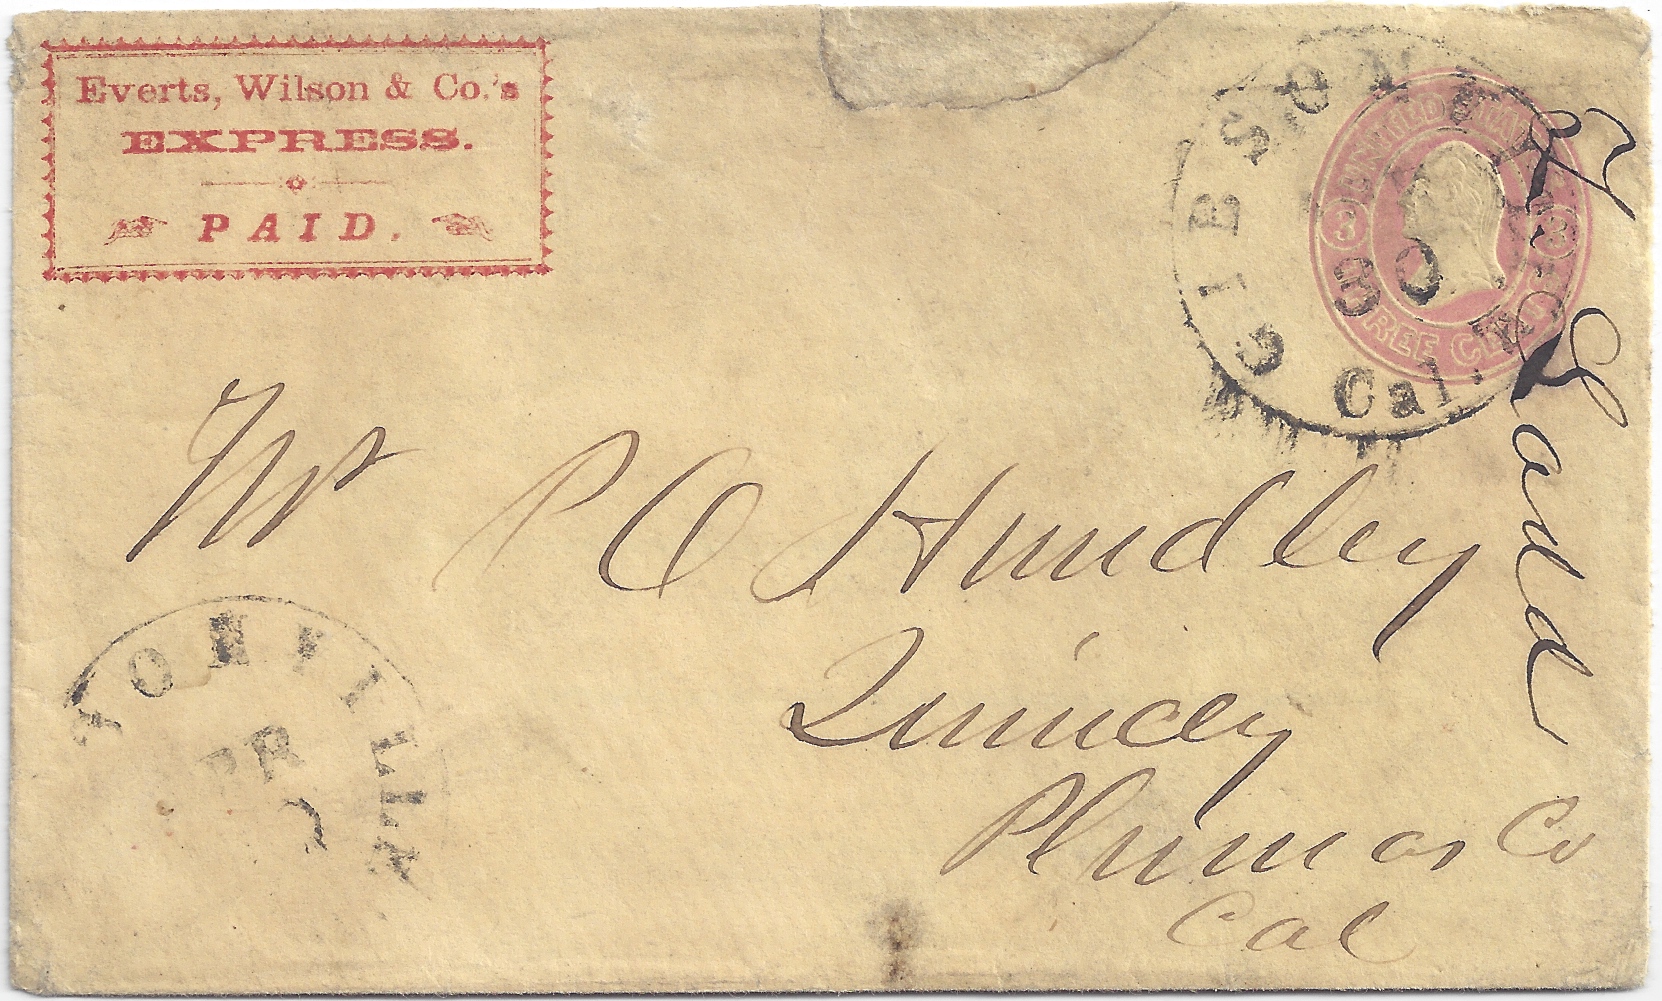 Everts, Wilson & Co.'s
EXPRESS.
PAID.
GIBSONVILLE
30
Cal.
UNITED STATES
3 3
THREE CENTS
Mr P C Hundley
Quincey
Plumas Co
Cal